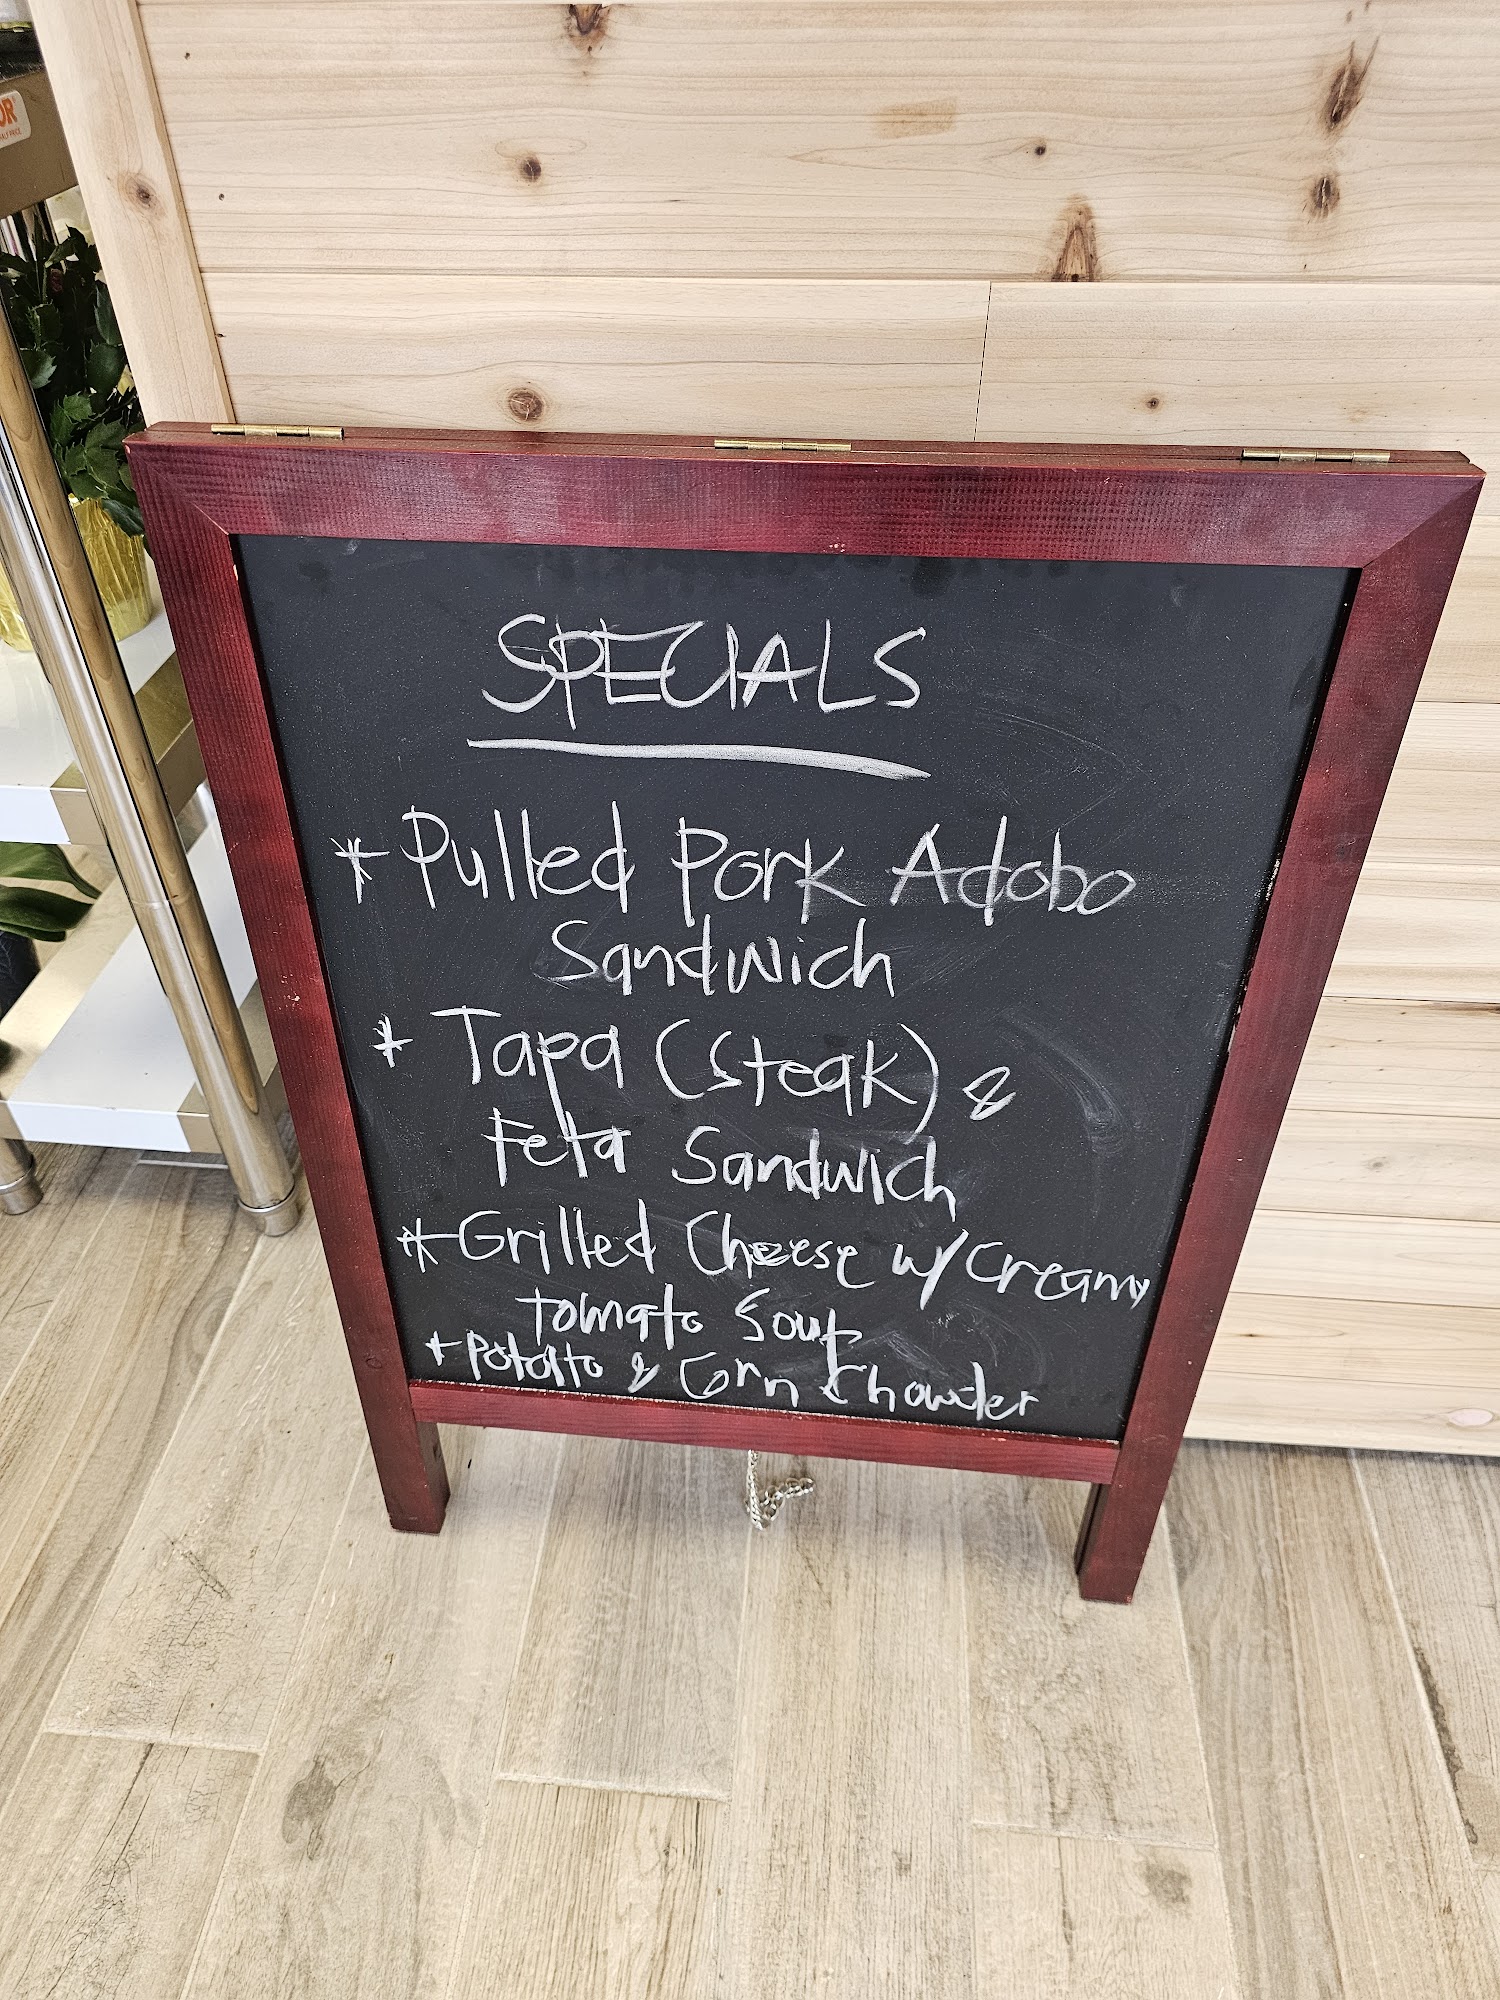 OR
HALF PRICE
SPECIALS
* Pulled Pork Adobo
Sandwich
* Tapa (steak) &
Feta Sandwich
* Grilled Cheese w/ creamy
tomato Soup
* Potato & Corn Chowder